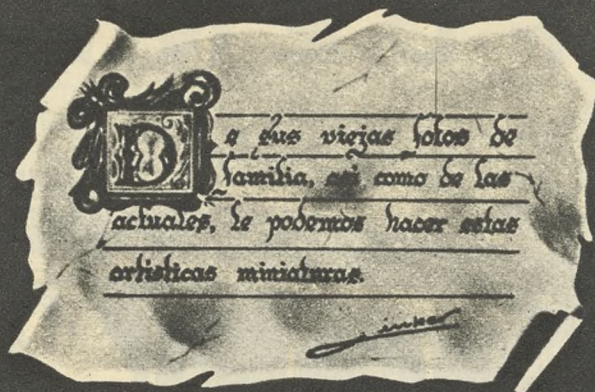 De sus viejas fotos de
familia, así como de las
actuales, le podemos hacer estas
artisticas miniaturas.